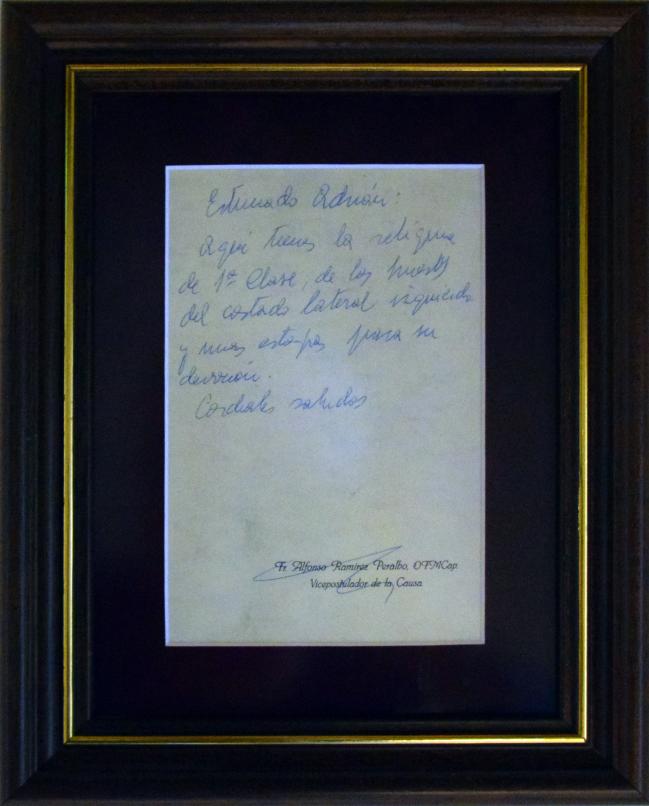 Estimado Adrián:
Aquí tienes la reliquia
de 1ª Clase, de los huesos
del costado lateral izquierdo
y unas estampas para su
devoción.
Cordiales saludos
Fr. Alfonso Ramírez Peralbo, OFMCap.
Vicepostulador de la Causa